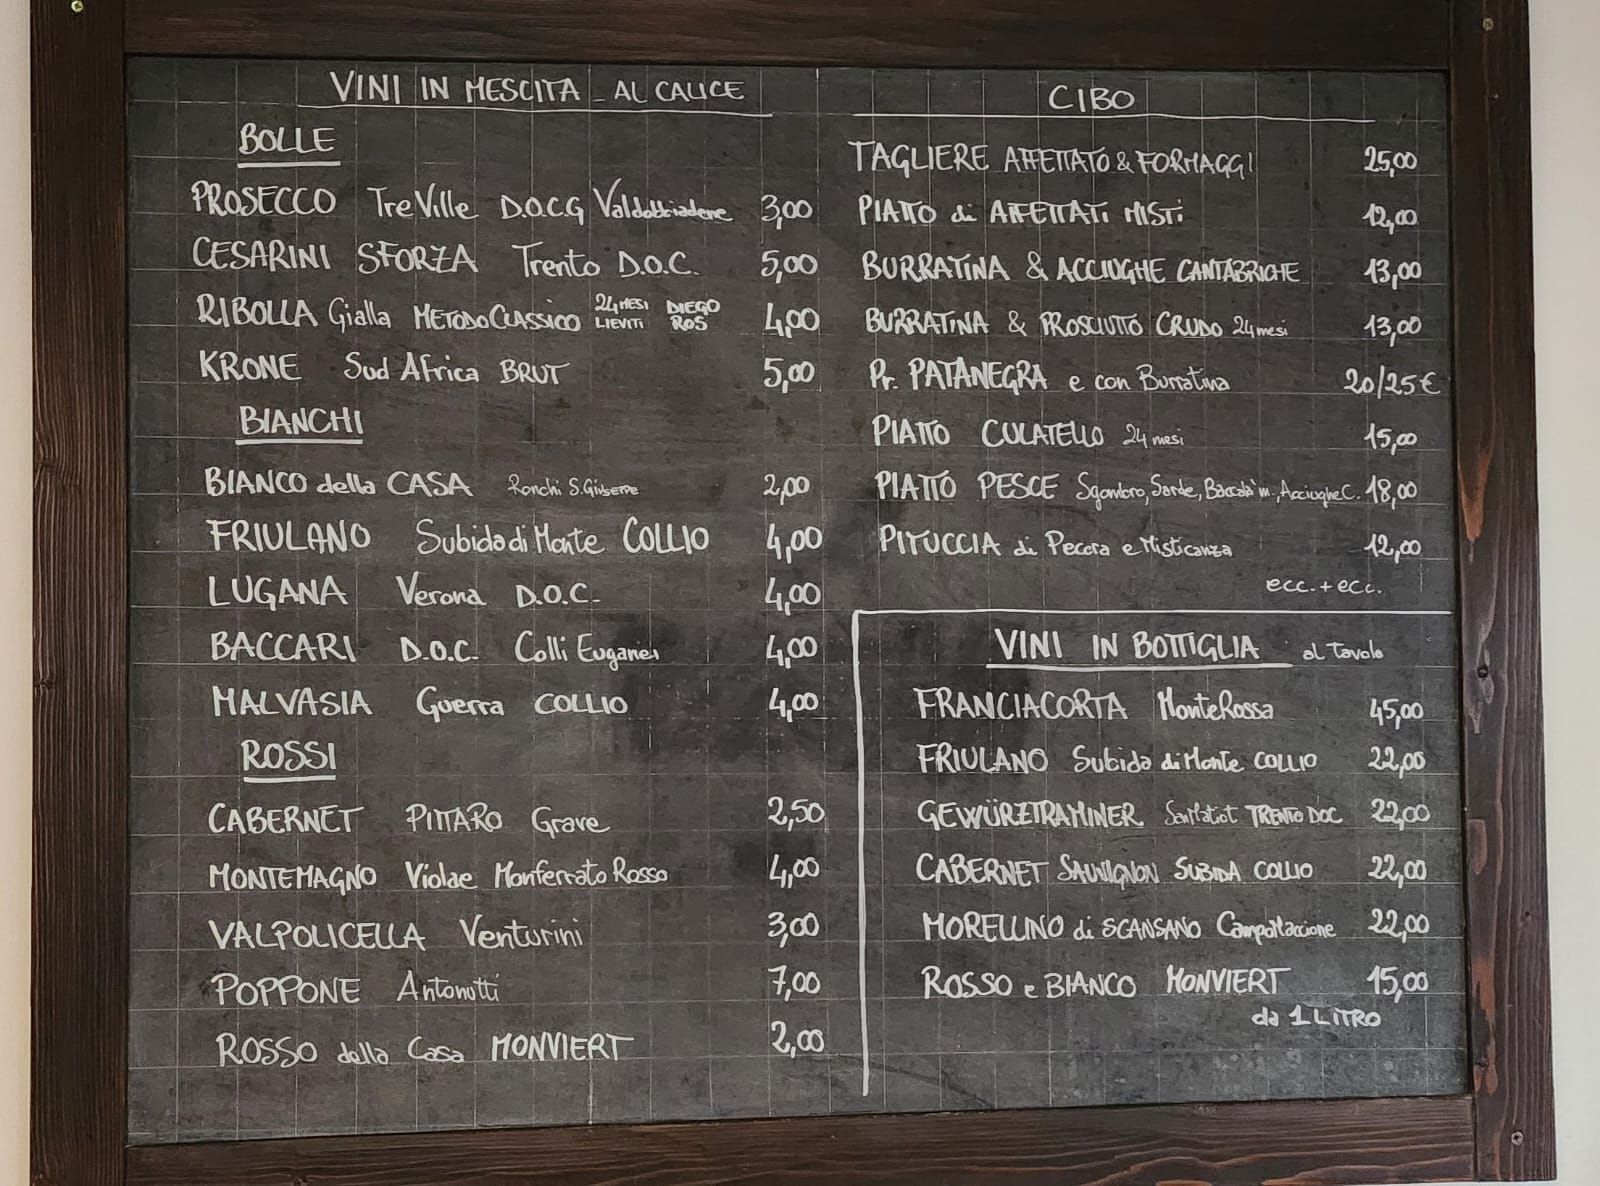 VINI IN MESCITA - AL CALICE
BOLLE
PROSECCO TreVille D.O.C.G Valdobbiadene 3,00
CESARINI SFORZA Trento D.O.C. 5,00
RIBOLLA Gialla METODO CLASSICO 24 MESI LIEVITI DIEGO ROS 4,00
KRONE Sud Africa BRUT 5,00
BIANCHI
BIANCO della CASA Ronchi S.Giuseppe 2,00
FRIULANO Subida di Monte COLLIO 4,00
LUGANA Verona D.O.C. 4,00
BACCARI D.O.C. Colli Euganei 4,00
MALVASIA Guerra COLLIO 4,00
ROSSI
CABERNET PITTARO Grave 2,50
MONTEMAGNO Violae Monferrato Rosso 4,00
VALPOLICELLA Venturini 3,00
POPPONE Antonutti 7,00
ROSSO della Casa MONVIERT 2,00
CIBO
TAGLIERE AFFETTATO & FORMAGGI 25,00
PIATTO di AFFETTATI MISTI 12,00
BURRATINA & ACCIUGHE CANTABRICHE 13,00
BURRATINA & PROSCIUTTO CRUDO 24 mesi 13,00
Pr. PATANEGRA e con Burratina 20/25€
PIATTO CULATELLO 24 mesi 15,00
PIATTO PESCE Sgombro, Sarde, Baccalà m., Acciughe C. 18,00
PITUCCIA di Pecora e Misticanza 12,00
ecc. + ecc.
VINI IN BOTTIGLIA al Tavolo
FRANCIACORTA MonteRossa 45,00
FRIULANO Subida di Monte COLLIO 22,00
GEWÜRZTRAMINER TRENTO DOC 22,00
CABERNET SAUVIGNON SUBIDA COLLIO 22,00
MORELLINO di SCANSANO 22,00
ROSSO e BIANCO MONVIERT 15,00
da 1 LITRO